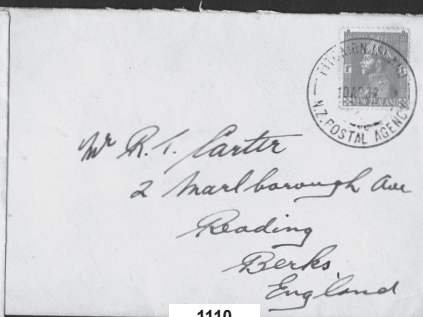 PITCAIRN ISLAND
N.Z. POSTAL AGENCY
NEW ZEALAND
Mr R. T. Carter
2 Marlborough Ave
Reading
Berks,
England
1110